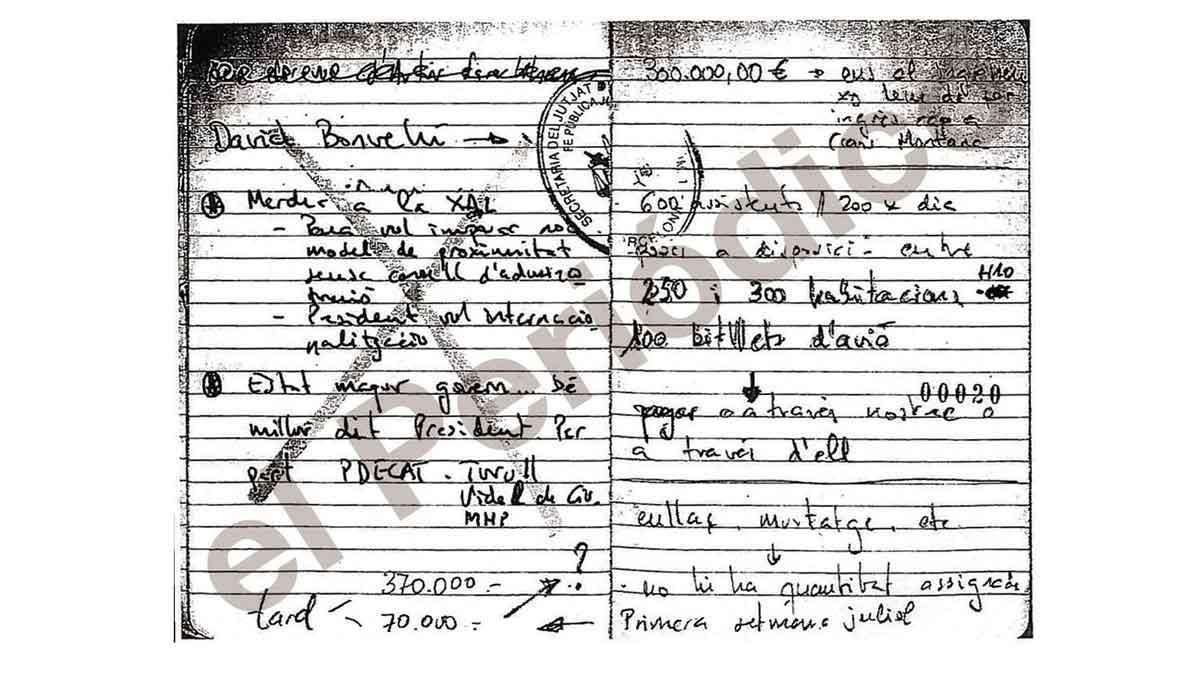 David Bonvehí →
Merder a la XAL
- Baià vol impulsar nou
model de proximitat
sense consell d'adminis
tració
- President vol internacio
nalització
Estat major govern... bé
millor dit President Per
part PDECAT. Turull
Vidal de Ciu.
MHP
?
370.000.-
tard - 70.000.- ←
SECRETARIA DEL JUTJAT
FE PÚBLICA JU
300.000,00 € → ens el
ingrés cap a
600 assistents // 200 x dia
a disposició entre
250 i 300 habitacions H10
100 bitllets d'avió
↓ 00020
pagar o a través nostre o
a través d'ell
enllaç, muntatge, etc
↓
- no hi ha quantitat assignada
Primera setmana juliol
el Periódic